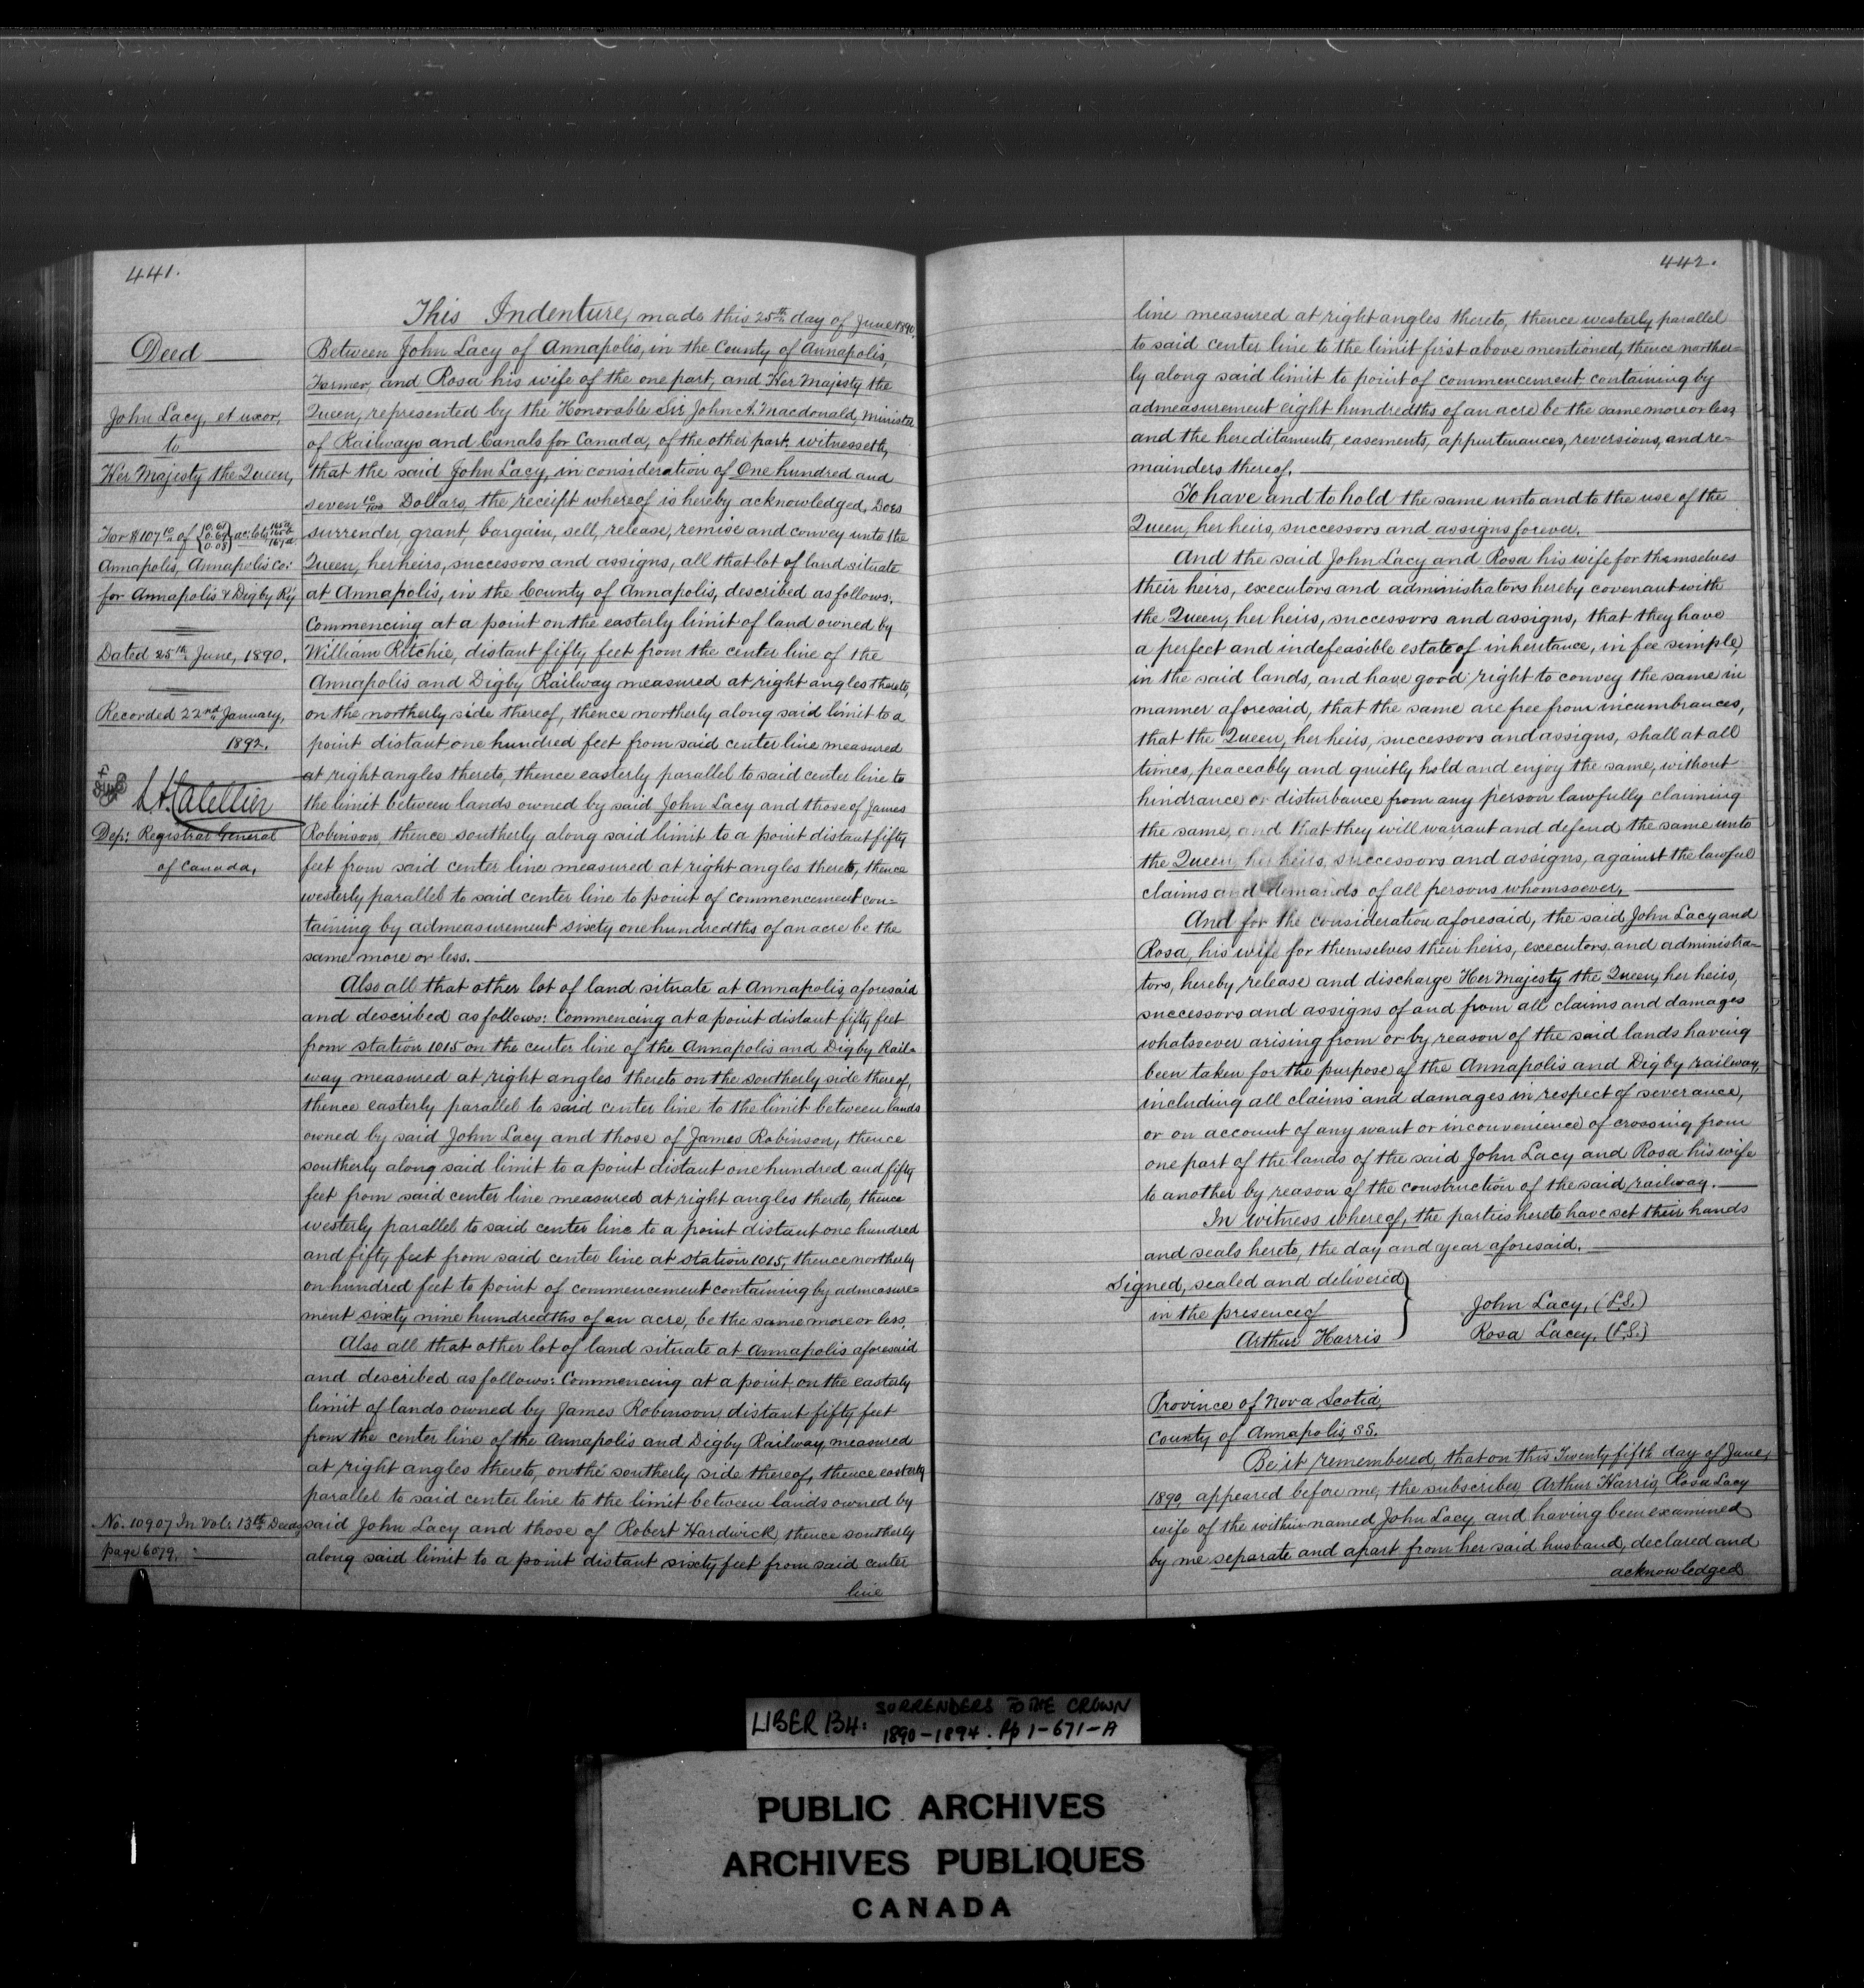 441.
Deed
John Lacy, et uxor,
to
Her Majesty the Queen,
For $107 10/ of {0.61 0.69 0.08} ac: lots
Annapolis, Annapolis Co:
for Annapolis & Digby Ry
Dated 25th June, 1890.
Recorded 22nd January,
1892.
Dep: Registrar General
of Canada,
No. 10907 In Vol: 13th Deeds
page 6079.
This Indenture, made this 25th day of June 1890,
Between John Lacy of Annapolis, in the County of Annapolis,
Farmer, and Rosa his wife of the one part, and Her Majesty the
Queen, represented by the Honorable Sir John A. Macdonald, Minister
of Railways and Canals for Canada, of the other part. witnesseth,
that the said John Lacy, in consideration of One hundred and
seven 10/100 Dollars, the receipt whereof is hereby acknowledged, Does
surrender, grant, bargain, sell, release, remise and convey unto the
Queen, her heirs, successors and assigns, all that lot of land situate
at Annapolis, in the County of Annapolis, described as follows.
Commencing at a point on the easterly limit of land owned by
William Ritchie, distant fifty feet from the center line of the
Annapolis and Digby Railway measured at right angles thereto,
on the northerly side thereof, thence northerly along said limit to a
point distant one hundred feet from said center line measured
at right angles thereto, thence easterly parallel to said center line to
the limit between lands owned by said John Lacy and those of James
Robinson, thence southerly along said limit to a point distant fifty
feet from said center line measured at right angles thereto, thence
westerly parallel to said center line to point of commencement con=
taining by admeasurement sixty one hundredths of an acre be the
same more or less.
Also all that other lot of land situate at Annapolis, aforesaid
and described as follows: Commencing at a point distant fifty feet
from station 1015 on the center line of the Annapolis and Digby Rail=
way measured at right angles thereto on the southerly side thereof,
thence easterly parallel to said center line to the limit between lands
owned by said John Lacy and those of James Robinson, thence
southerly along said limit to a point distant one hundred and fifty
feet from said center line measured at right angles thereto, thence
westerly parallel to said center line to a point distant one hundred
and fifty feet from said center line at station 1015, thence northerly
on hundred feet to point of commencement containing by admeasure=
ment sixty nine hundredths of an acre, be the same more or less.
Also all that other lot of land situate at Annapolis aforesaid
and described as follows: Commencing at a point, on the easterly
limit of lands owned by James Robinson, distant fifty feet
from the center line of the Annapolis and Digby Railway measured
at right angles thereto, on the southerly side thereof, thence easterly
parallel to said center line to the limit between lands owned by
said John Lacy and those of Robert Hardwick, thence southerly
along said limit to a point distant sixty feet from said center
line
442.
line measured at right angles thereto, thence westerly parallel
to said center line to the limit first above mentioned, thence norther=
ly along said limit to point of commencement, containing by
admeasurement eight hundredths of an acre be the same more or less,
and the hereditaments, easements, appurtenances, reversions, and re=
mainders thereof.
To have and to hold the same unto and to the use of the
Queen, her heirs, successors and assigns forever.
And the said John Lacy and Rosa his wife for themselves
their heirs, executors and administrators hereby covenant with
the Queen, her heirs, successors and assigns, that they have
a perfect and indefeasible estate of inheritance, in fee simple,
in the said lands, and have good right to convey the same in
manner aforesaid, that the same are free from incumbrances,
that the Queen, her heirs, successors and assigns, shall at all
times, peaceably and quietly hold and enjoy the same, without
hindrance or disturbance from any person lawfully claiming
the same, and that they will warrant and defend the same unto
the Queen, her heirs, successors and assigns, against the lawful
claims and demands of all persons whomsoever.
And for the consideration aforesaid, the said John Lacy and
Rosa, his wife for themselves their heirs, executors and administra=
tors, hereby release and discharge Her Majesty the Queen, her heirs,
successors and assigns of and from all claims and damages
whatsoever arising from or by reason of the said lands having
been taken for the purpose of the Annapolis and Digby railway,
including all claims and damages in respect of severance,
or on account of any want or inconvenience of crossing from
one part of the lands of the said John Lacy and Rosa his wife
to another by reason of the construction of the said railway.
In witness whereof, the parties hereto have set their hands
and seals hereto, the day and year aforesaid.
Signed, sealed and delivered
in the presence of
Arthur Harris
John Lacy, (L.S.)
Rosa Lacey, (L.S.)
Province of Nova Scotia,
County of Annapolis, SS.
Be it remembered, that on this Twenty fifth day of June,
1890, appeared before me, the subscriber, Arthur Harris, Rosa Lacy
wife of the within named John Lacy, and having been examined
by me separate and apart from her said husband, declared and
acknowledged
LIBER 134: SURRENDERS TO THE CROWN
1890-1894. Pp 1-671-A
PUBLIC ARCHIVES
ARCHIVES PUBLIQUES
CANADA